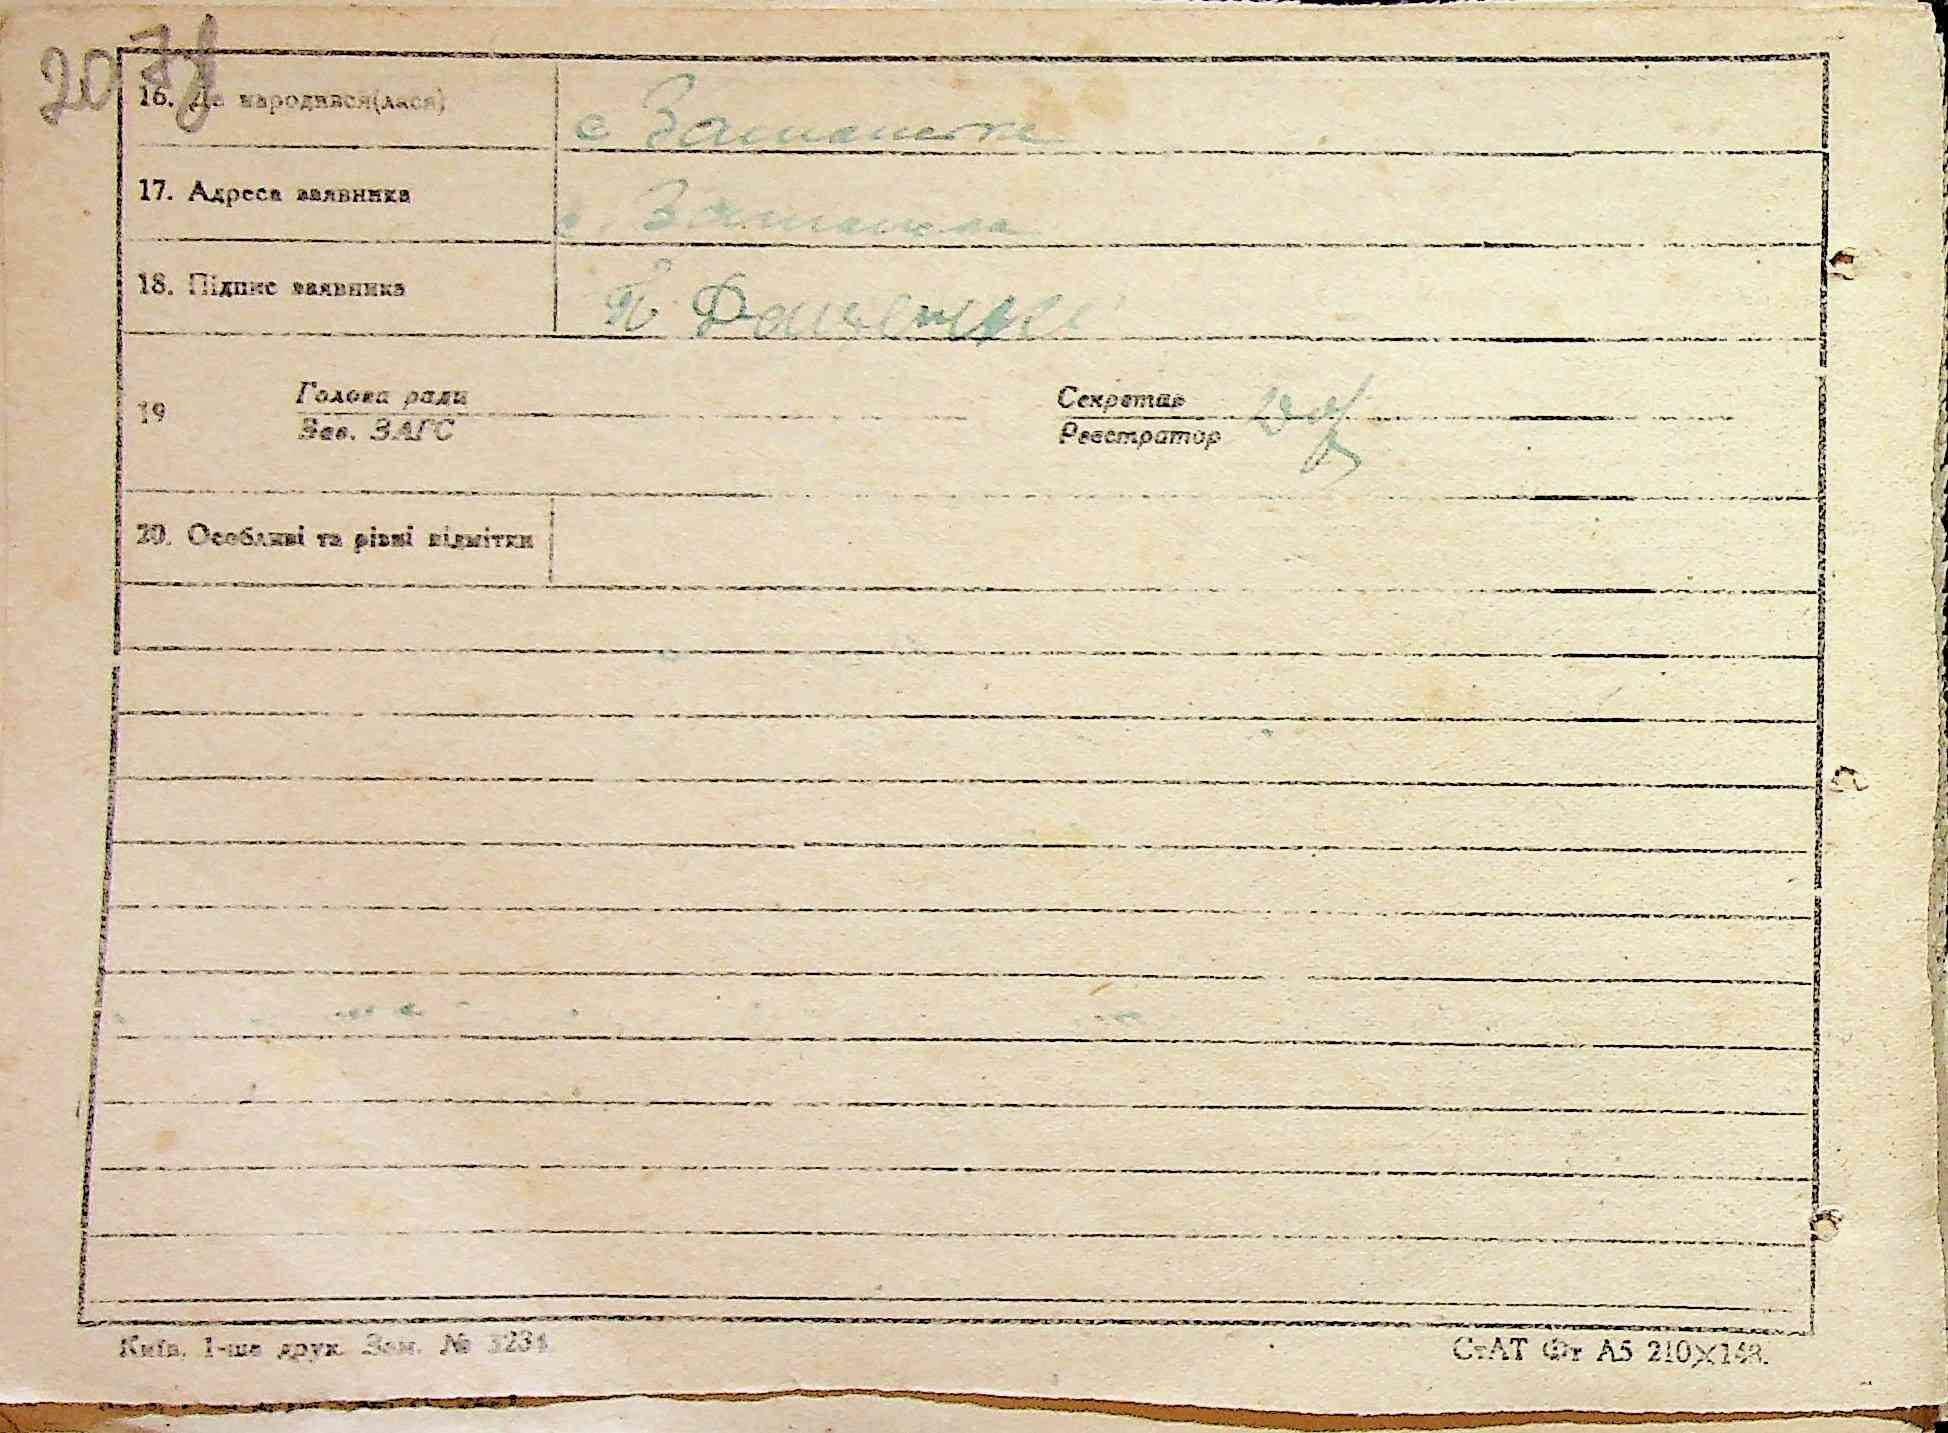 207
16. Де народився(лася)
с
17. Адреса заявника
с.
18. Підпис заявника
П.
19 Голова ради Секретар
Зав. ЗАГС Реєстратор
20. Особливі та різні відмітки
Київ. 1-ша друк. Зам. № 3234
СтАТ Фт А5 210×148.